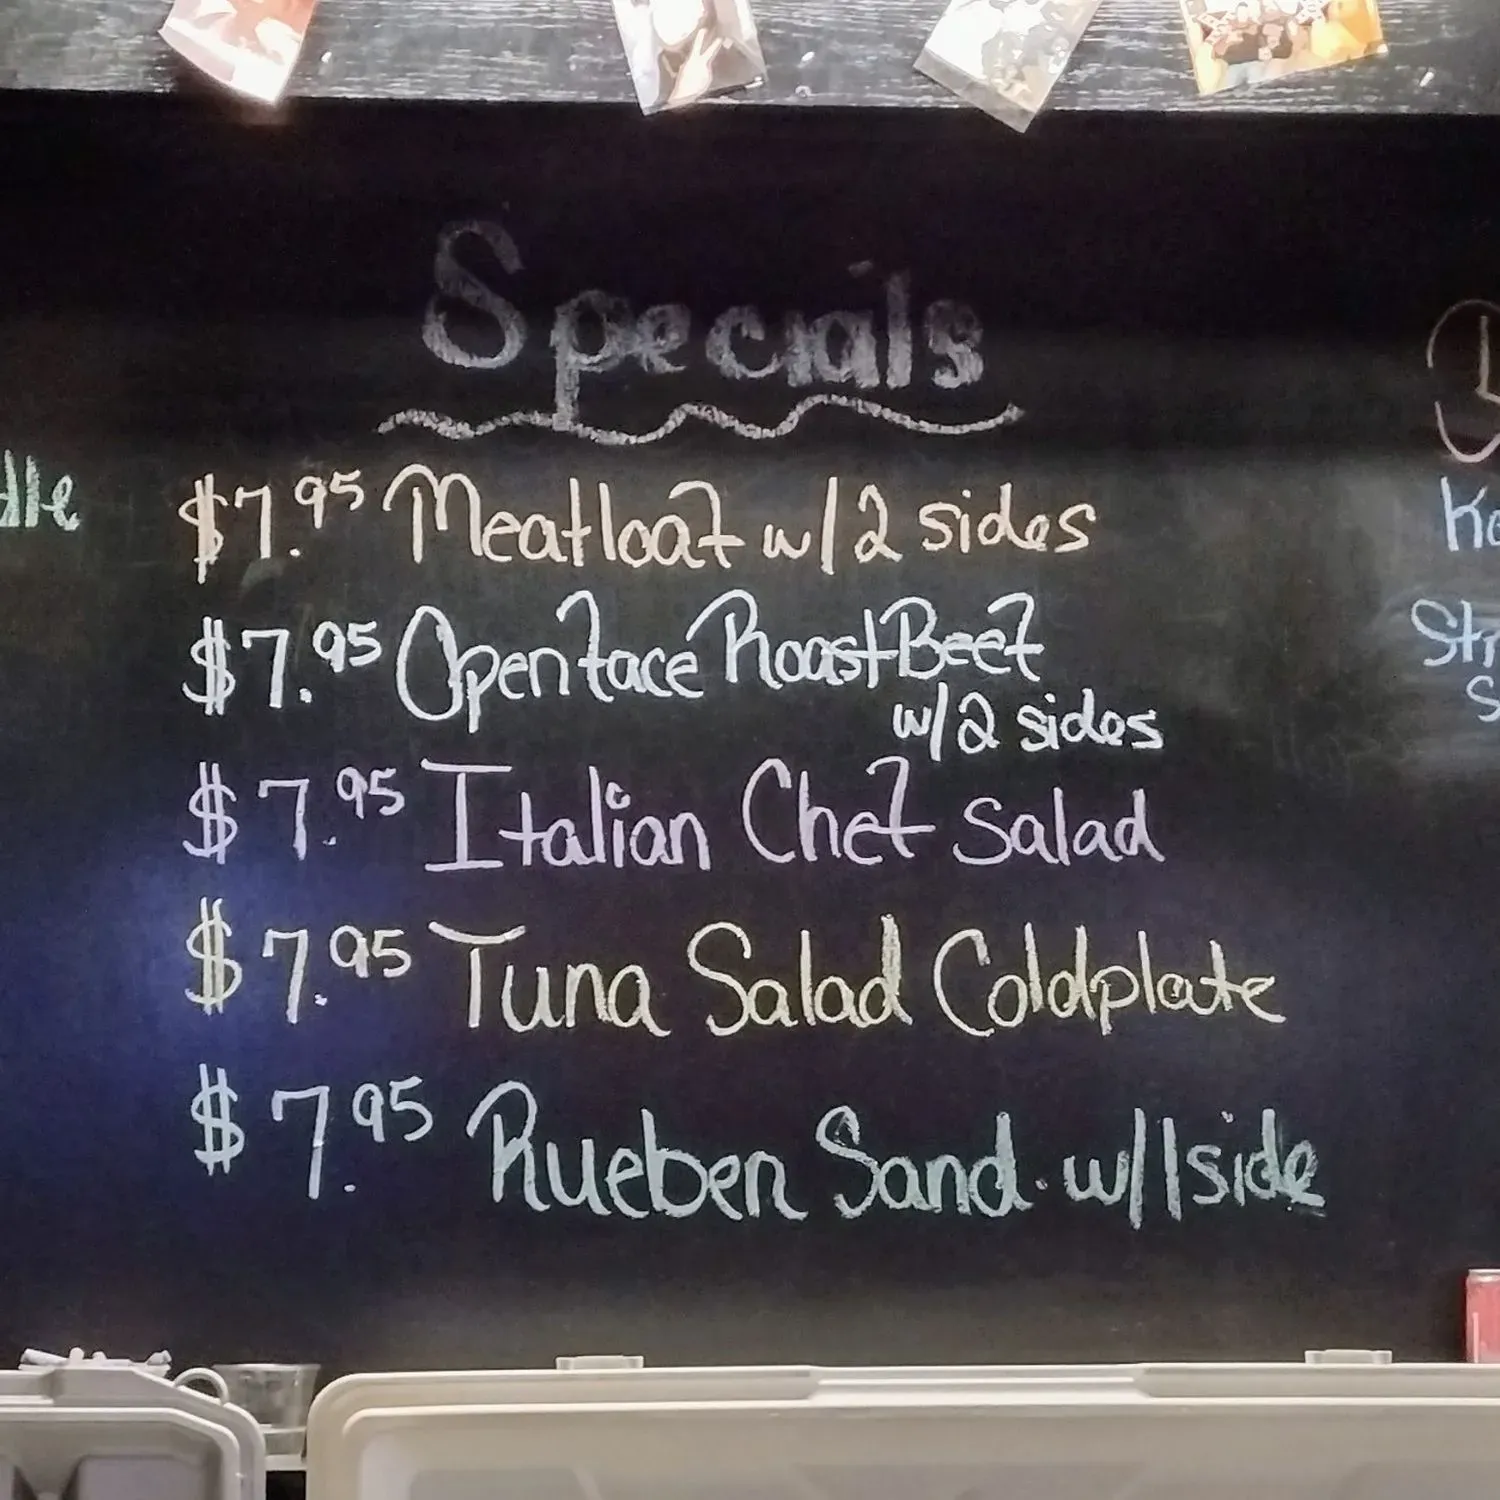 Specials
$7.95 Meatloaf w/2 sides
$7.95 Openface Roast Beef
w/2 sides
$7.95 Italian Chef salad
$7.95 Tuna Salad Coldplate
$7.95 Rueben Sand. w/1 side